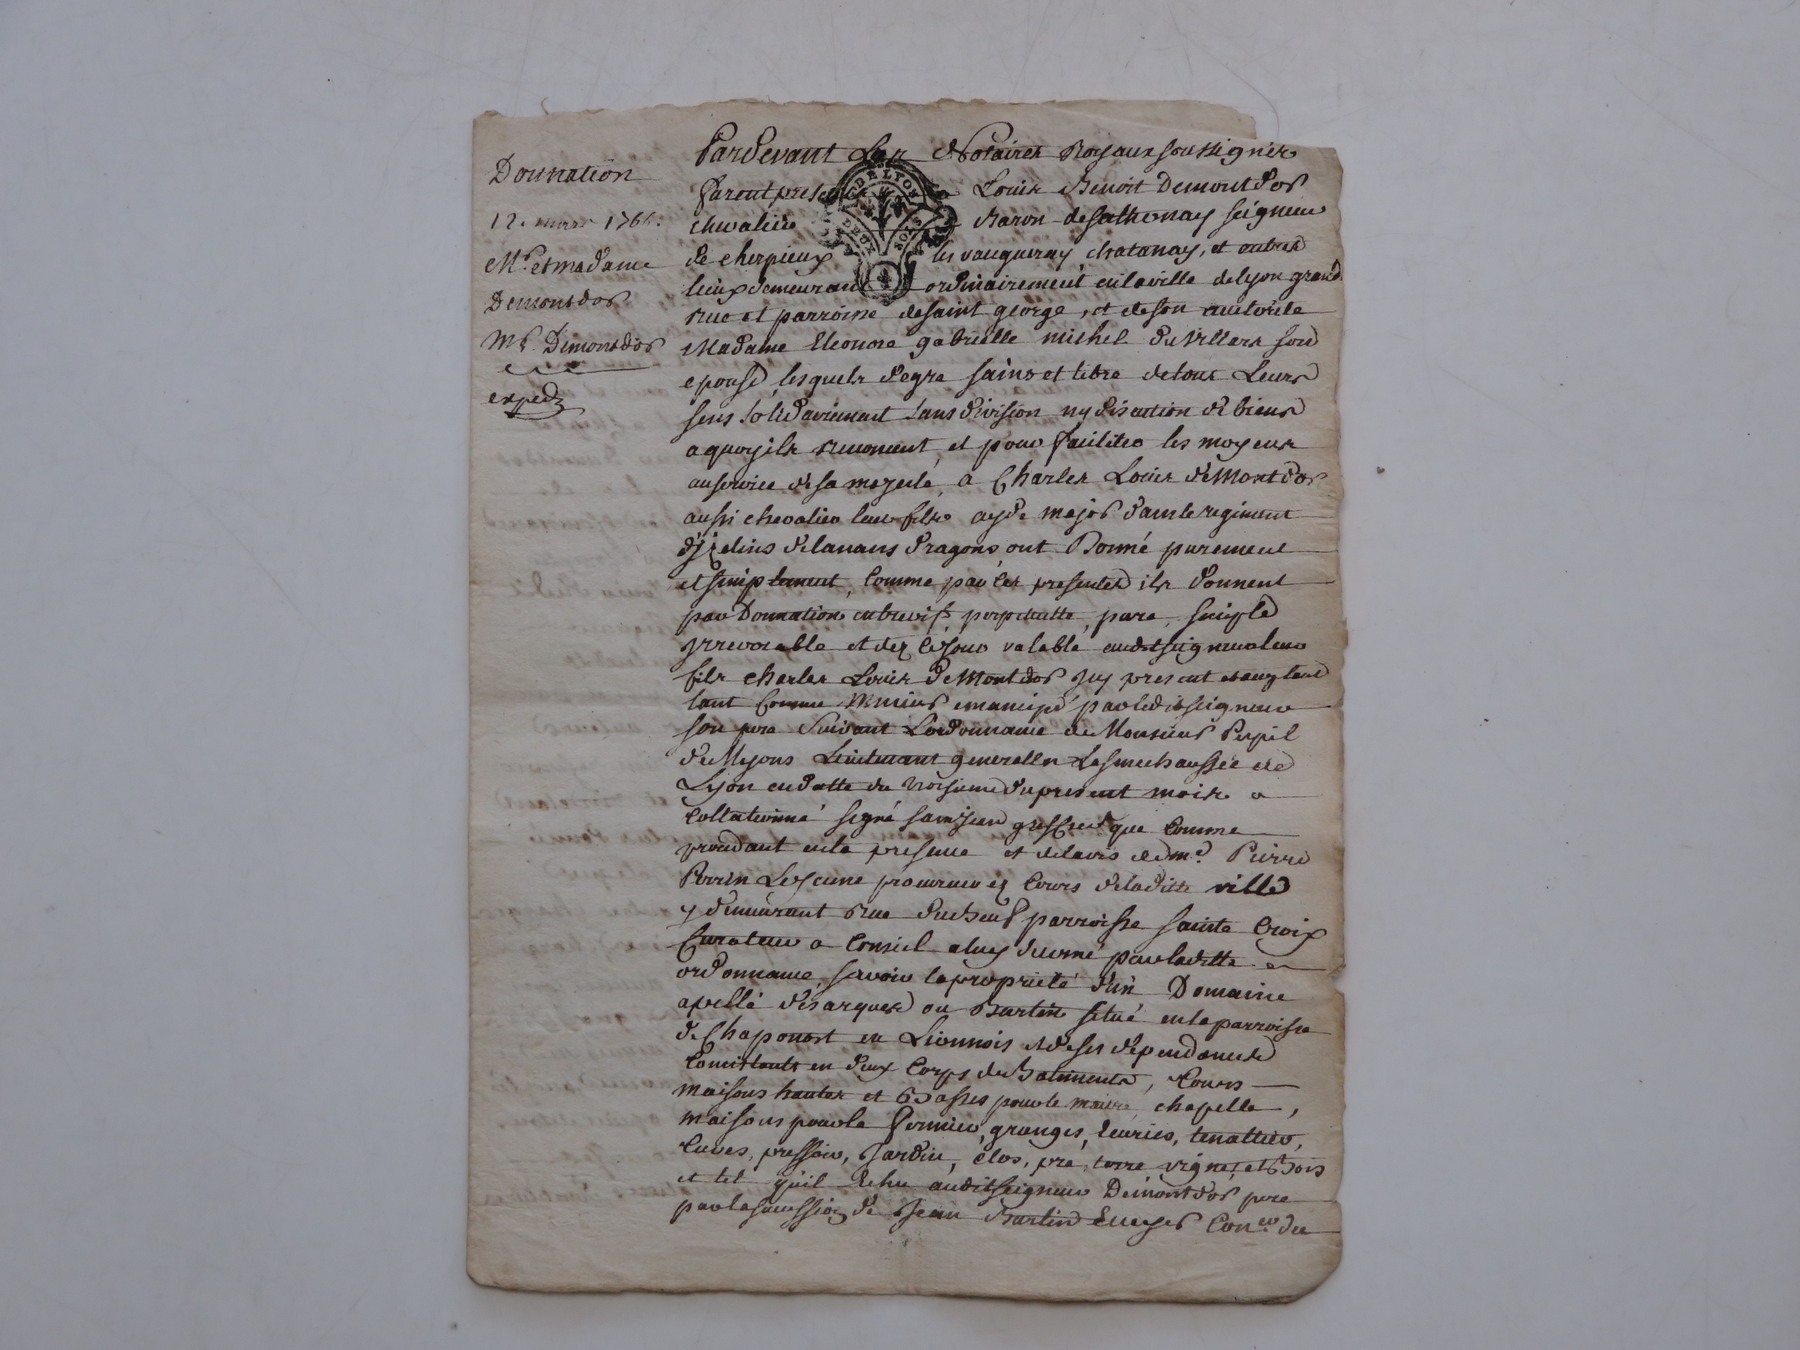 Donnation
12. mars 1764.
Mr. et madame
Demontdor
Mr. Demontdor
exped
Pardevant Les Notaires Royaux soussignés
furent presens Louis Benoit Demontdor
chevalier Baron de sathonay seigneur
de cherpieux les vaugneray, chatanay, et autres
lieux demeurant ordinairement en la ville de lyon grand
rue et parroisse de saint george, et de son autorité
Madame Eleonore gabrielle michel du villars son
epouse, lesquels degre sains et libre de tous Leurs
sens solidairement sans division ny discution de biens
a quoy ils renoncent, et pour faciliter les moyens
au service de sa majesté, a Charles Louis de Montdor
aussi chevalier leur fils ayde major dans le regiment
de dragons ont Donné purement
et simplement, comme par ces presentes ils donnent
par Donnation entrevifs perpetuelle, pure, simple
jrrevocable et des cejour valable audit seigneur leur
fils charles Louis de Montdor jcy present et acceptant
tant comme Mineur emancipé par ledit seigneur
son pere suivant Lordonnance de Monsieur Pupil
de Myons Lieutenant general en La senechaussée de
Lyon en datte du troisieme du present mois a
collationné signé greffier que comme
procedant en la presence et de lavis de me. Pierre
Perrin Lejeune procureur es cours de laditte ville
y demeurant rue du beuf parroisse sainte Croix
Curateur a conseil a luy decerné par laditte
ordonnance, savoir la proprieté d'un Domaine
apellé desarques ou Bartin situé en la parroisse
de Chaponost en Lionnois et de ses dépendances
Consistants en deux Corps de Batiments, cours
maisons hautes et Basses pour le maitre, chapelle,
maisons pour le fermier, granges, ecuries, tenallier,
Cuves, pressoir, Jardin, clos, pré, terre, vigne, et Bois
et tel quil echu audit seigneur Demontdor pere
par la succession de Jean Bartin Ecuyer Coner. du
DE LYON
DEUX SOLS